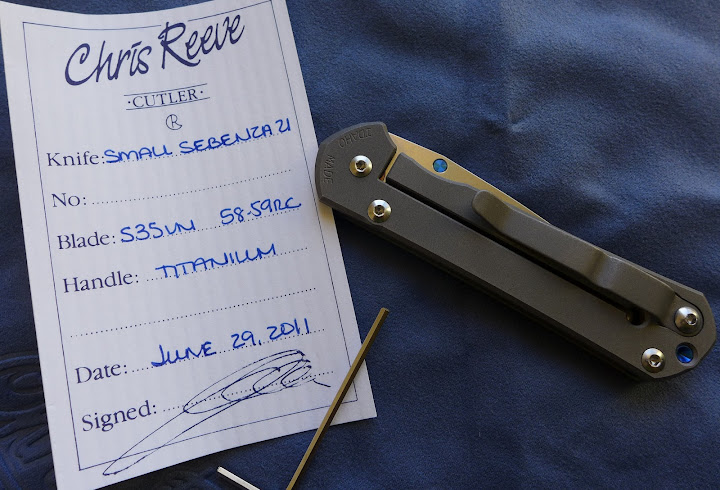 Chris Reeve
·CUTLER·
R
Knife: SMALL SEBENZA 21
No:
Blade: S35VN 58-59RC
Handle: TITANIUM
Date: JUNE 29, 2011
Signed:
IDAHO
MADE